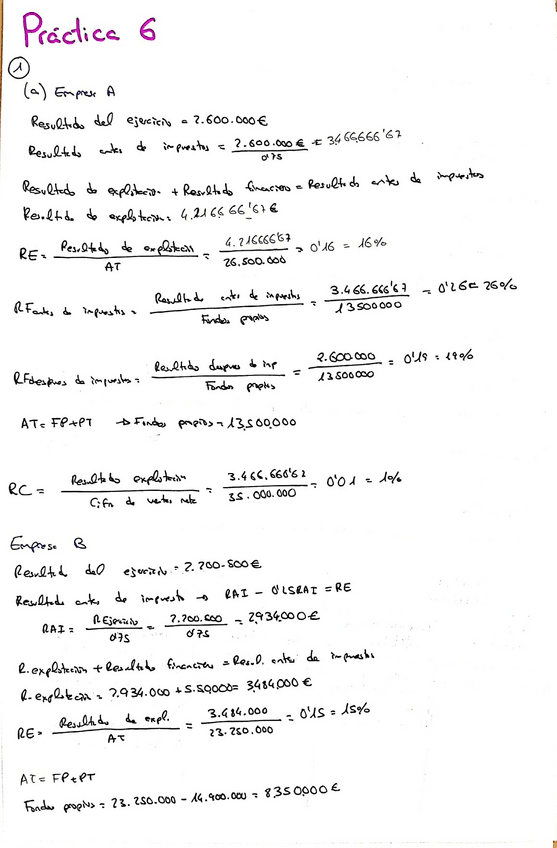 Práctica 6
1
(a) Empresa A
Resultado del ejercicio = 2.600.000 €
Resultado antes de impuestos = 2.600.000 € / 0'75 = 3.466.666'67
Resultado de explotación + Resultado financiero = Resultado antes de impuestos
Resultado de explotación = 4.216666'67 €
RE = Resultado de explotación / AT = 4.216666'67 / 26.500.000 = 0'16 = 16%
RF antes de impuestos = Resultado antes de impuestos / Fondos propios = 3.466.666'67 / 13500000 = 0'26 = 26%
RF despues de impuestos = Resultado despues de imp / Fondos propios = 2.600.000 / 13500000 = 0'19 = 19%
AT = FP + PT → Fondos propios = 13.500.000
RC = Resultado explotación / Cifra de ventas neta = 3.466.666'67 / 35.000.000 = 0'01 = 1%
Empresa B
Resultado del ejercicio = 2.200.500 €
Resultado antes de impuesto → RAI - 0'25RAI = RE
RAI = R Ejercicio / 0'75 = 2.200.500 / 0'75 = 2.934.000 €
R. explotación + Resultado financiero = Resul. antes de impuestos
R. explotación = 2.934.000 + 5.50000 = 3.484.000 €
RE = Resultado de expl. / AT = 3.484.000 / 23.250.000 = 0'15 = 15%
AT = FP + PT
Fondos propios = 23.250.000 - 14.900.000 = 8.350.000 €